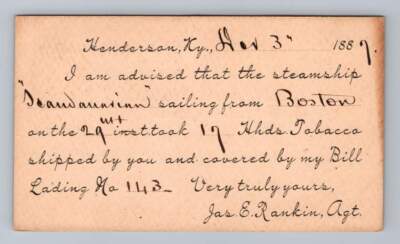 Henderson, Ky., Dec 3d 1887.
I am advised that the steamship
"Scandanavian" sailing from Boston
on the 29 ult inst. took 17 Hhds. Tobacco
shipped by you and covered by my Bill
Lading No 143 — Very truly yours,
Jas. E. Rankin, Agt.